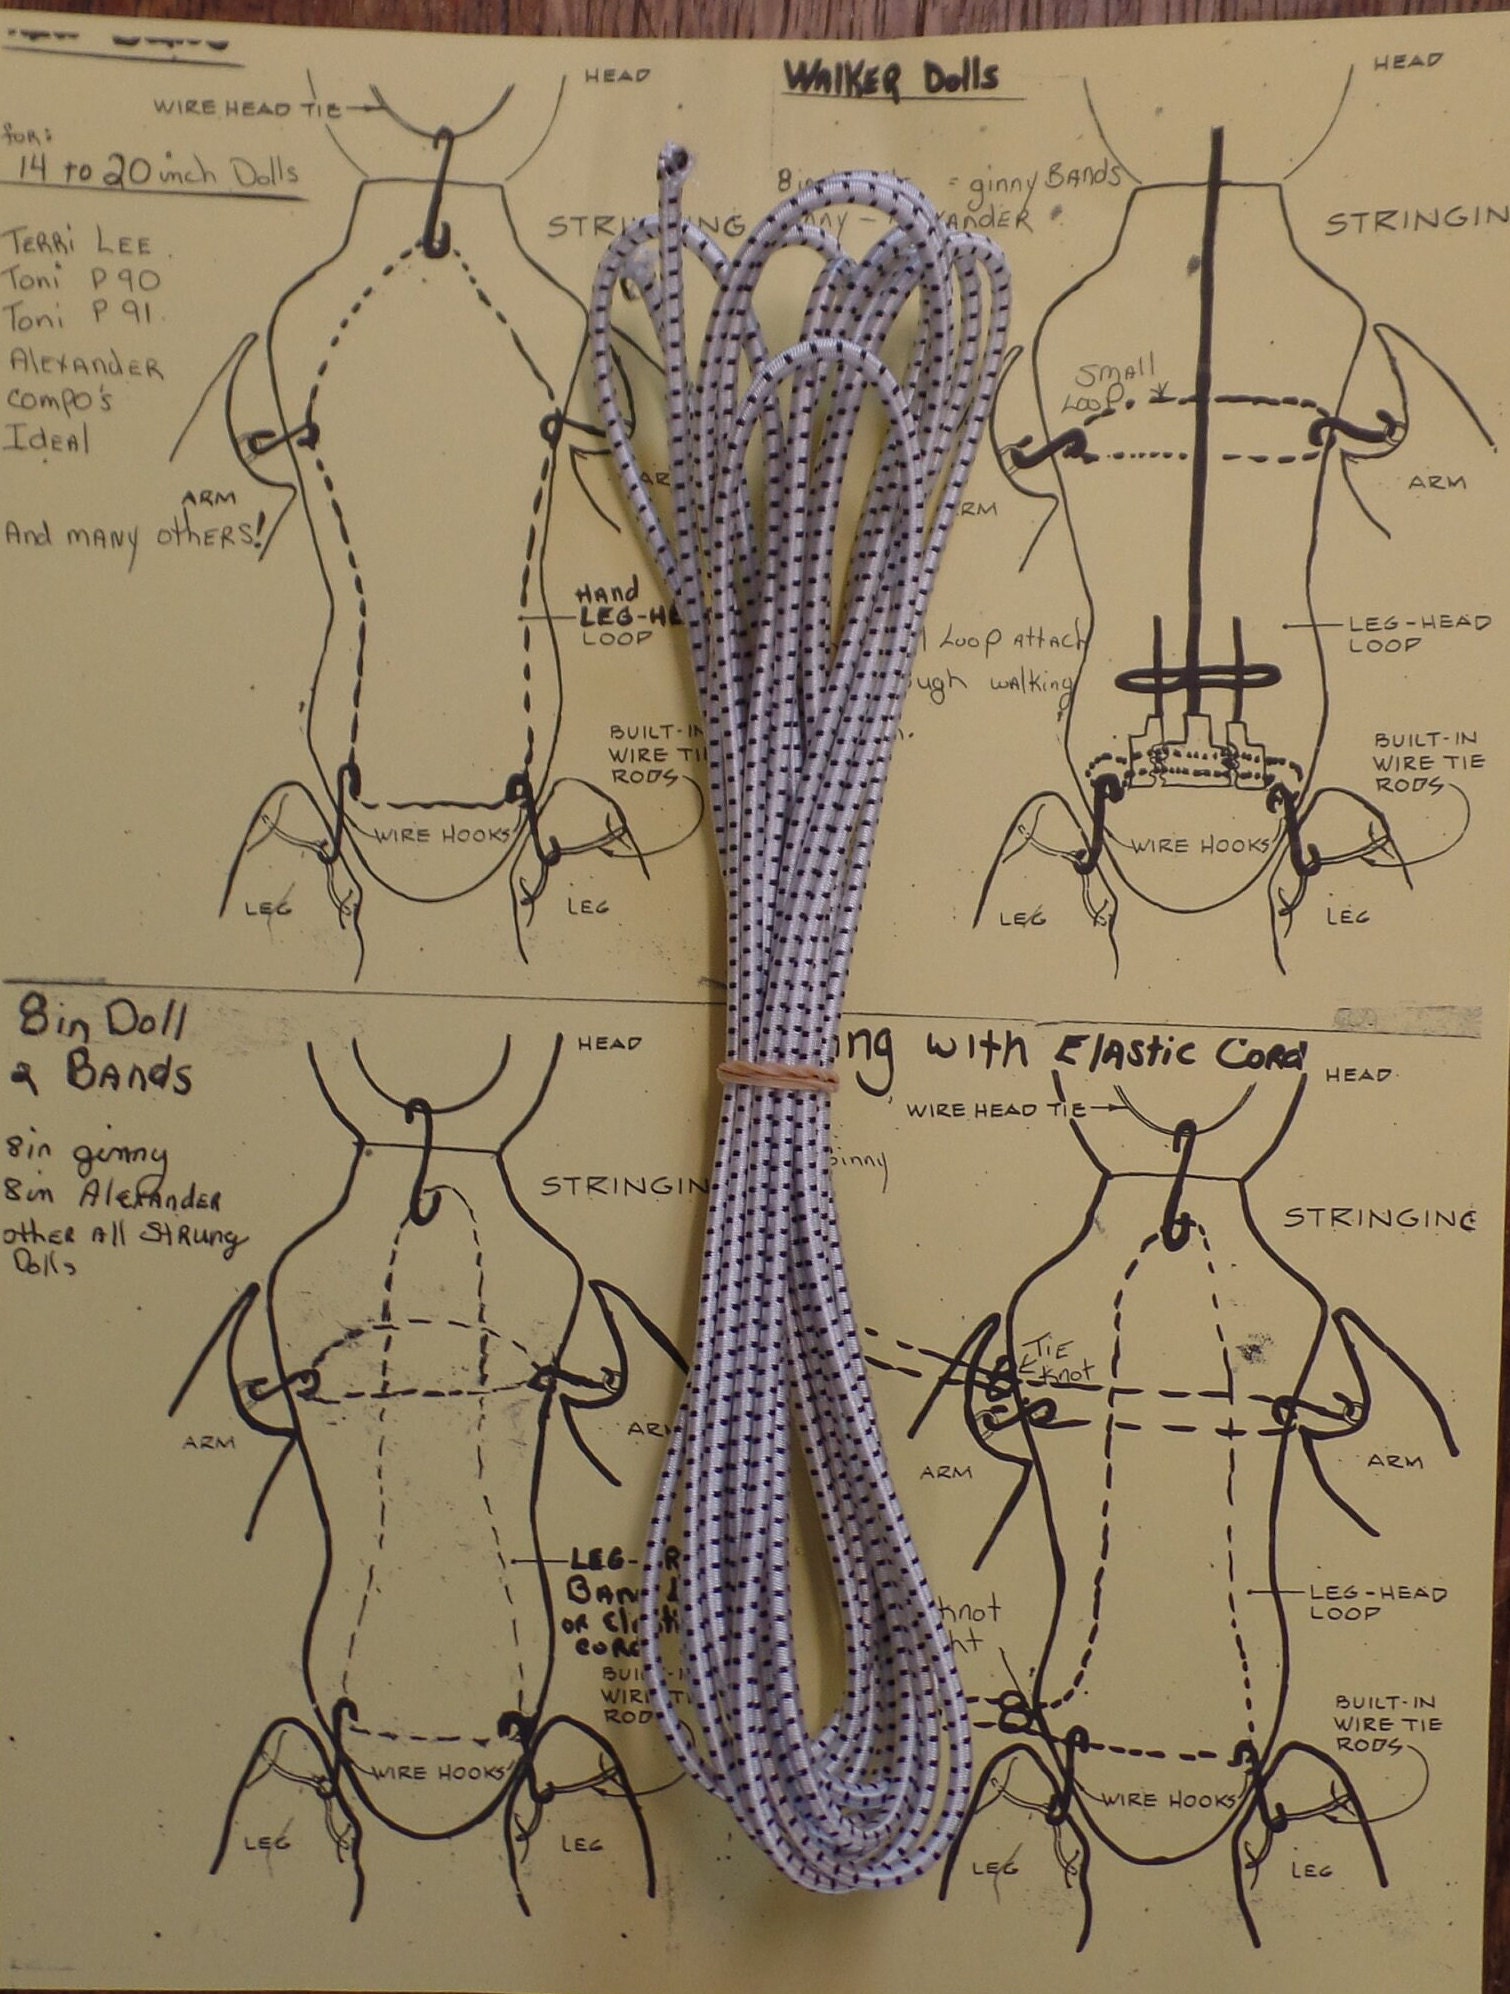 HEAD
WIRE HEAD TIE
for:
14 to 20 inch Dolls
STRINGING
TERRi LEE
Toni P 90
Toni P 91.
ALEXANDER
compo's
IDEAL
ARM
And MANY others!
HAnd
LEG-HE
LOOP
BUILT-IN
WIRE TIE
RODS
WIRE HOOKS
LEG
LEG
WALKER Dolls
HEAD
8in = ginny BANDS
STRINGIN
SMALL
LOOP
ARM
LOOP ATTACH
walking
LEG-HEAD
LOOP
BUILT-IN
WIRE TIE
RODS
WIRE HOOKS
LEG
LEG
8in Doll
2 BANDS
HEAD
8in ginny
8in AlexANDER
other All StRung
Dolls
STRINGIN
ARM
LEG-
BUILT-IN
WIRE TI
ROD
WIRE HOOKS
LEG
LEG
ng with Elastic Cord
HEAD
WIRE HEAD TIE
ginny
STRINGING
TIE
Knot
ARM
ARM
knot
LEG-HEAD
LOOP
BUILT-IN
WIRE TIE
RODS
WIRE HOOKS
LEG
LEG